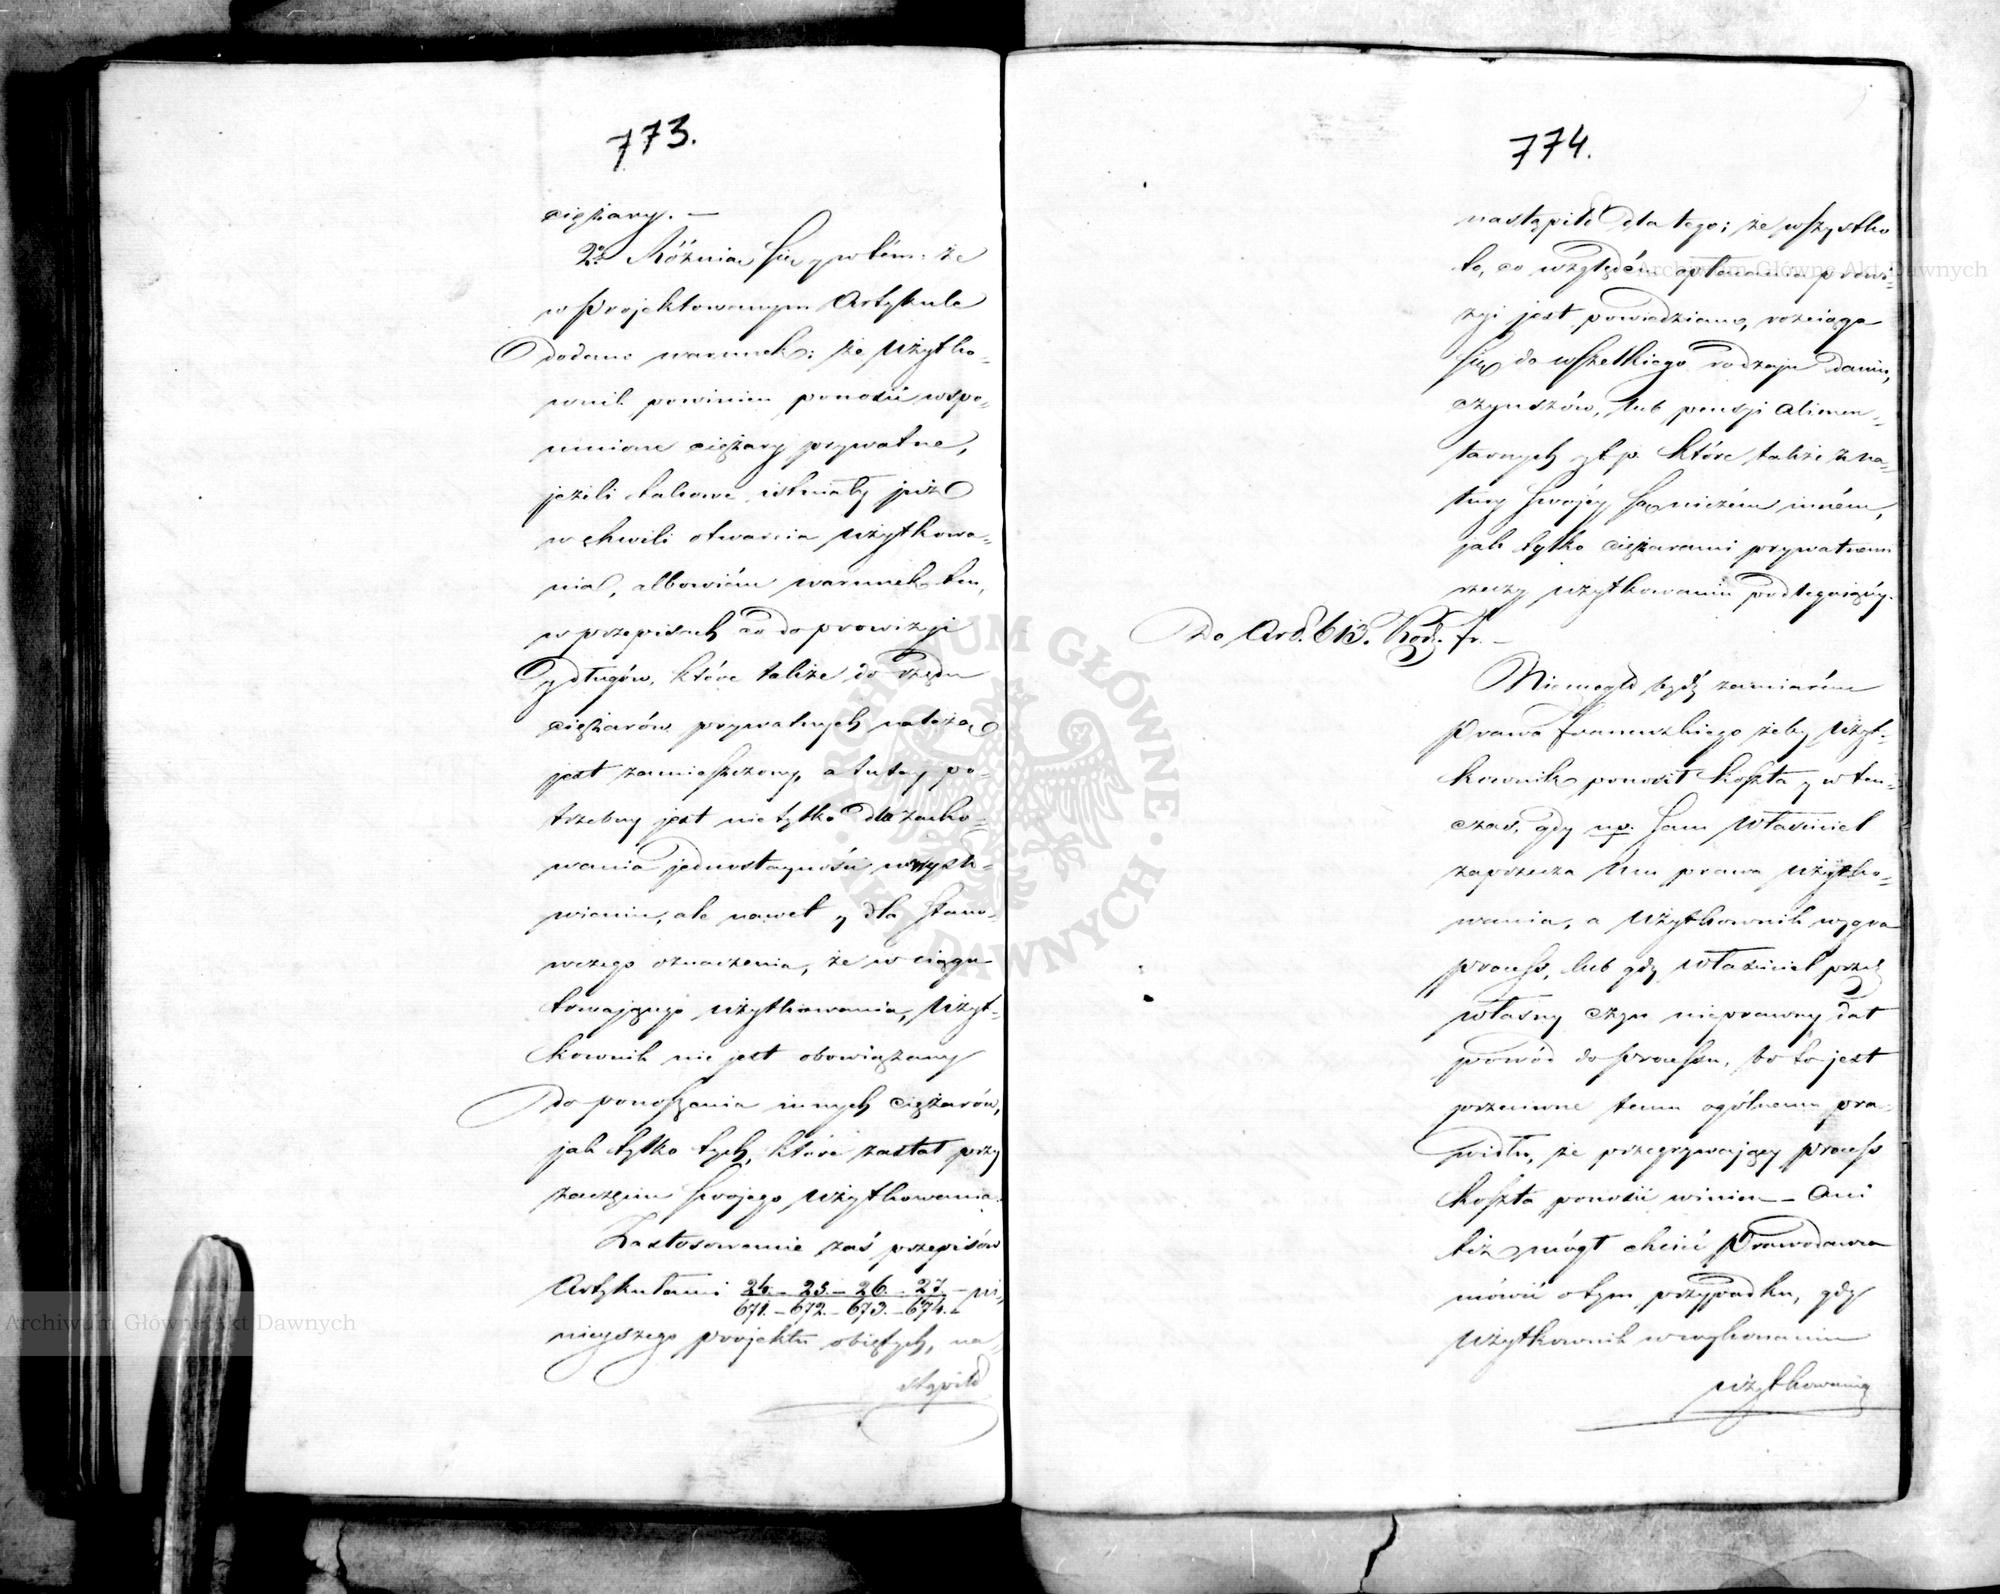 773.
ciężary. —
2o. Różnia się y w tém: że
w projektowanym Artykule
dodano warunek; że Użytko-
wnik powinien ponosić wspo-
mnione ciężary prywatne,
jeżeli takowe istniały już
w chwili otwarcia użytkowa-
nia, albowiém warunek ten,
w przepisach co do prowizyi
y długów, które także do rzędu
ciężarów prywatnych należą
jest zamieszczony, a tutay po-
trzebny jest nie tylko dla zacho-
wania jednostayności w wysło-
wieniu, ale nawet y dla stano-
wczego oznaczenia, że w ciągu
trwającego użytkowania, Użyt-
kownik nie jest obowiązany
do ponoszenia innych ciężarów,
jak tylko tych, które zastał przy
zaczęciu swojego użytkowania.
Zastosowanie zaś przepisów
Artykułami 24. - 25. - 26. - 27. - ni-
671. - 672. - 673. - 674. -
nieyszego projektu objętych, na-
stąpiło
774.
nastąpiło dla tego; że wszystko
to, co względém opłacania prowi-
zyi jest powiedziano, rozciąga
się do wszelkiego rodzaju danin,
czynszów, lub pensyi alimen-
tarnych y t. p. które także z na-
tury swojéy są niczém inném,
jak tylko ciężarami prywatnemi
rzeczy użytkowaniu podlegaiącéy.
Do Art. 613. Kod. fr. —
Niemogło bydź zamiarém
Prawa francuzkiego żeby Użyt-
kownik ponosił koszta y w ten-
czas, gdy np. sam Właściciel
zaprzecza Mu prawa użytko-
wania, a Użytkownik wygra
process, lub gdy Właściciel przez
własny czyn nieprawny dał
powód do processu, bo to jest
przeciwne temu ogólnemu pra-
widłu, że przegrywający process
koszta ponosić winien — Ani
téż mógł chcieć Prawodawca
mówić o tym przypadku, gdy
Użytkownik w wykonaniu
użytkowania
Archiwum Główne Akt Dawnych
Archiwum Główne Akt Dawnych
ARCHIWUM GŁÓWNE · AKT DAWNYCH ·